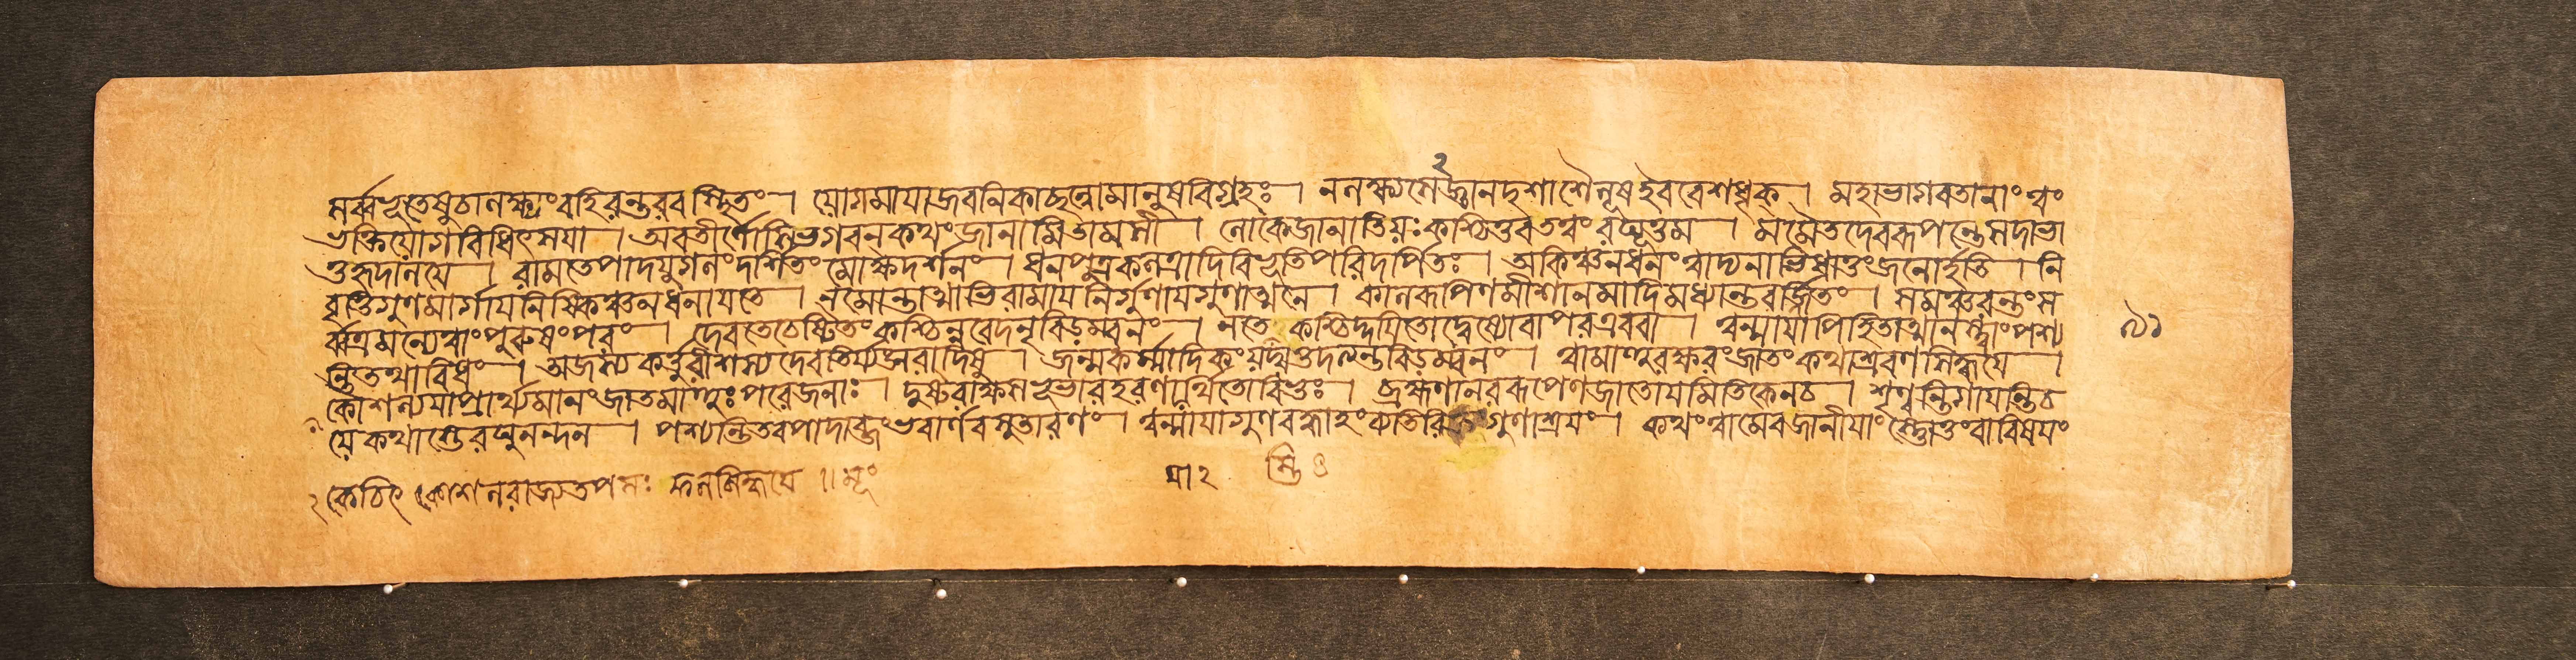 সর্ব্বভূতেষুচালক্ষ্যংবহিরন্তরবস্থিতং। যোগমাযাজবনিকাছন্নোমানুষবিগ্রহঃ। নলক্ষ্যসেজ্ঞানদৃশাশৈলূষইববেশধৃক্। মহাভাগবতানাংত্বং
ভক্তিযোগবিধিৎসযা। অবতীর্ণোসিভগবনকথংজানামিতামসী। লোকেজানাতিযঃকশ্চিত্তবতত্বংরঘূত্তম। মমৈতদেবরূপন্তেসদাভা
তুহৃদালযে। রামতেপাদযুগলংদর্শিতংমোক্ষদর্শনং। ধনপুত্রকলত্রাদিবিভূতিপরিদর্পিতঃ। অকিঞ্চনধনংত্বাদ্যনাভিধাতুংজনোর্হতি। নি
বৃত্তগুণমার্গাযনিষ্কিঞ্চনধনাযতে। নমোন্তাত্মাভিরামাযনির্গুণাযগুণাত্মনে। কালরূপিণমীশানমাদিমধ্যান্তবর্জ্জিতং। সমঞ্চরন্তংস
র্ব্বত্রমন্যেত্বাংপুরুষংপরং। দেবতেচেষ্টিতংকশ্চিন্নবেদনৃবিড়ম্বনং। নতে কশ্চিদ্দযিতোদ্বেষ্যোবাপরএববা। ত্বন্মাযাপিহিতাত্মানস্ত্বাংপশ্য ৯১
ন্তিতথাবিধং। অজস্যকর্ত্তুরীশস্যদেবতির্য্যঙ্নরাদিষু। জন্মকর্ম্মাদিকংযদ্যত্তদত্যন্তবিড়ম্বনং। ত্বামাহুরক্ষরংজাতংকথাশ্রবণসিদ্ধযে।
কৌশল্যযাপ্রার্থ্যমানংজাতমাহুঃপরেজনাঃ। দুষ্টরাক্ষসভূভারহরণাযার্থিতোবিভুঃ। ব্রহ্মণানররূপেণজাতোযমিতিকেচন। শৃণ্বন্তিগাযন্তিচ
যেকথাস্তেরঘুনন্দন। পশ্যন্তিতবপাদাব্জংভবার্ণবসুতারণং। ত্বন্মাযাগুণবদ্ধাহং গুণাশ্রযং। কথংত্বাদেবজানীযাংস্তোতুংবাবিষযং
২ কেচিৎ কোশলরাজস্যতপসঃ ফলসিদ্ধযে॥ যা ২